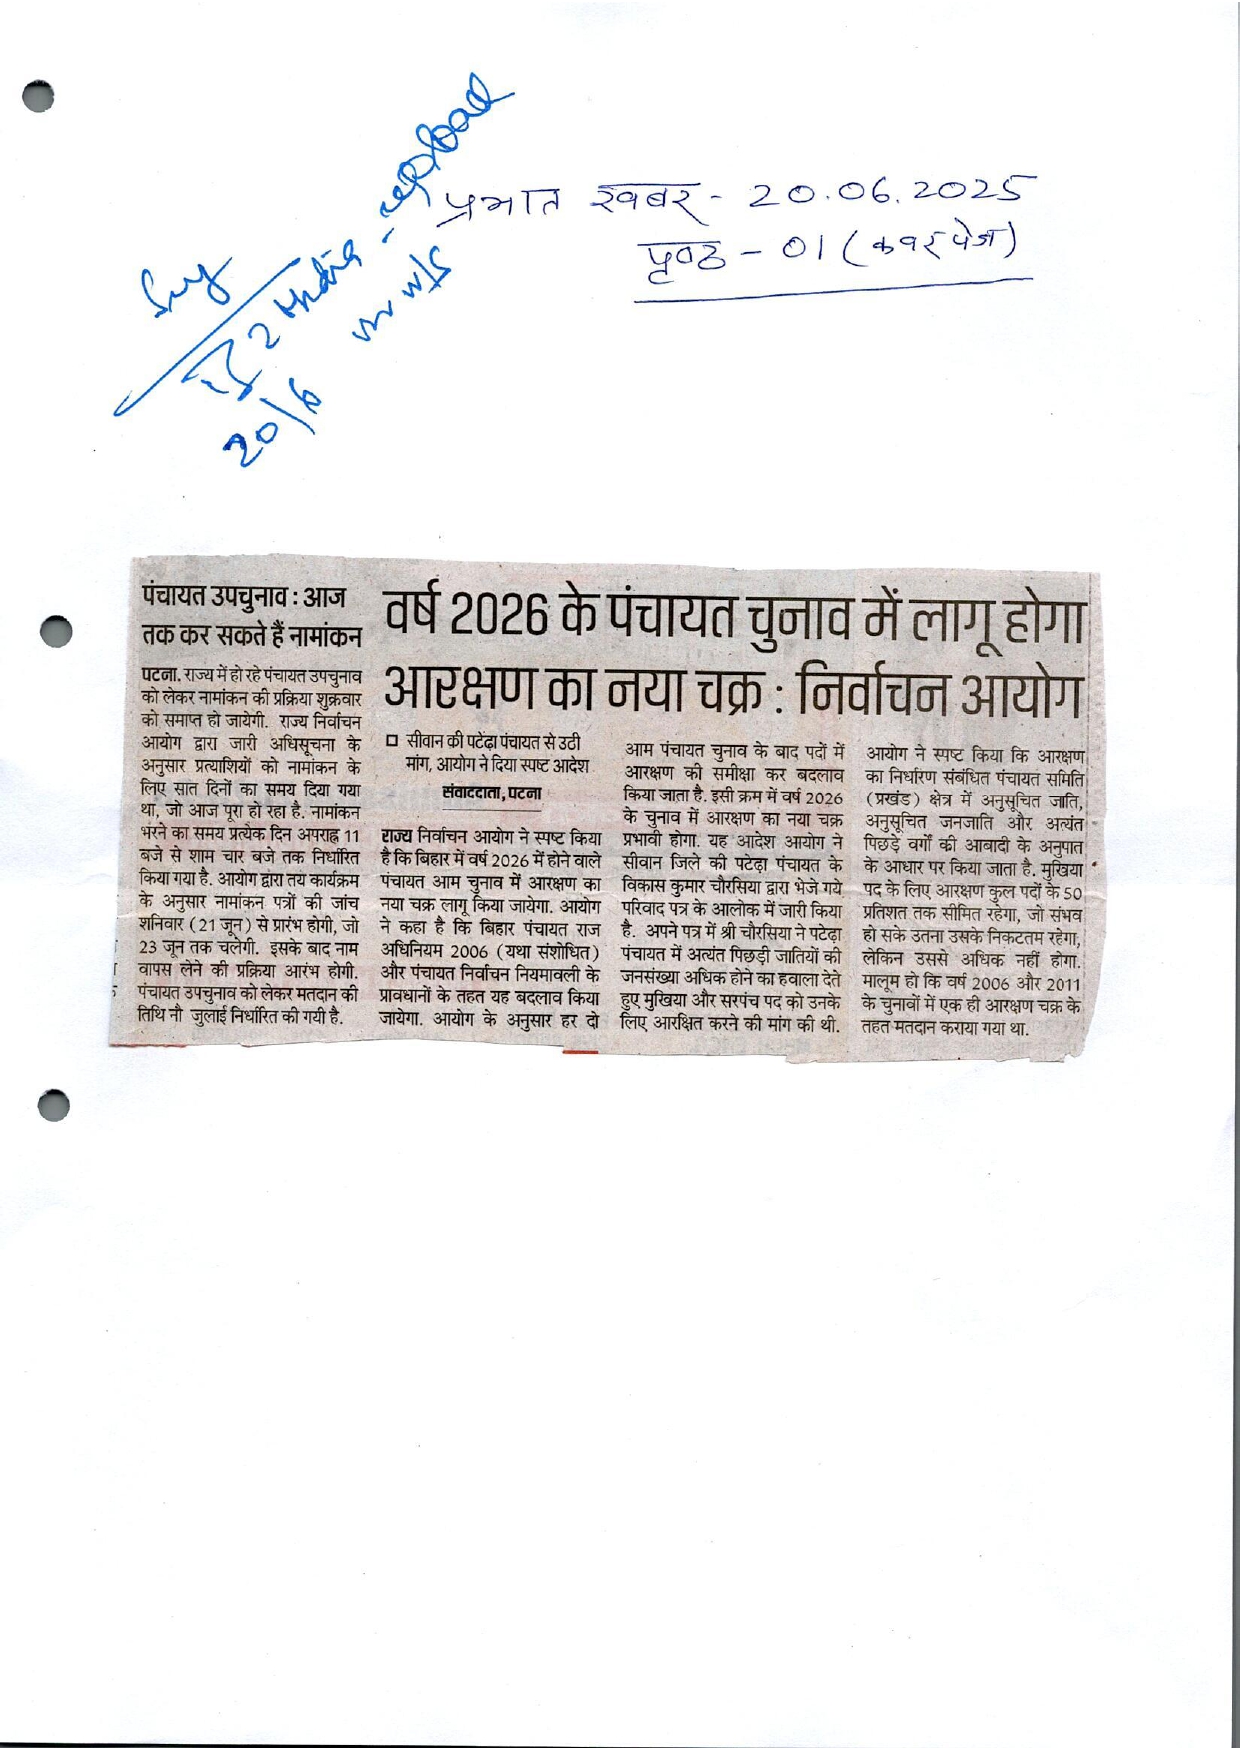 प्रभात खबर - 20.06.2025
पृष्ठ - 01 (कवर पेज)
2 Media - upload
20/6
पंचायत उपचुनाव : आज
तक कर सकते हैं नामांकन
पटना. राज्य में हो रहे पंचायत उपचुनाव
को लेकर नामांकन की प्रक्रिया शुक्रवार
को समाप्त हो जायेगी. राज्य निर्वाचन
आयोग द्वारा जारी अधिसूचना के
अनुसार प्रत्याशियों को नामांकन के
लिए सात दिनों का समय दिया गया
था, जो आज पूरा हो रहा है. नामांकन
भरने का समय प्रत्येक दिन अपराह्न 11
बजे से शाम चार बजे तक निर्धारित
किया गया है. आयोग द्वारा तय कार्यक्रम
के अनुसार नामांकन पत्रों की जांच
शनिवार (21 जून) से प्रारंभ होगी, जो
23 जून तक चलेगी. इसके बाद नाम
वापस लेने की प्रक्रिया आरंभ होगी.
पंचायत उपचुनाव को लेकर मतदान की
तिथि नौ जुलाई निर्धारित की गयी है.
वर्ष 2026 के पंचायत चुनाव में लागू होगा
आरक्षण का नया चक्र : निर्वाचन आयोग
सीवान की पटेढ़ा पंचायत से उठी
मांग, आयोग ने दिया स्पष्ट आदेश
संवाददाता, पटना
राज्य निर्वाचन आयोग ने स्पष्ट किया
है कि बिहार में वर्ष 2026 में होने वाले
पंचायत आम चुनाव में आरक्षण का
नया चक्र लागू किया जायेगा. आयोग
ने कहा है कि बिहार पंचायत राज
अधिनियम 2006 (यथा संशोधित)
और पंचायत निर्वाचन नियमावली के
प्रावधानों के तहत यह बदलाव किया
जायेगा. आयोग के अनुसार हर दो
आम पंचायत चुनाव के बाद पदों में
आरक्षण की समीक्षा कर बदलाव
किया जाता है. इसी क्रम में वर्ष 2026
के चुनाव में आरक्षण का नया चक्र
प्रभावी होगा. यह आदेश आयोग ने
सीवान जिले की पटेढ़ा पंचायत के
विकास कुमार चौरसिया द्वारा भेजे गये
परिवाद पत्र के आलोक में जारी किया
है. अपने पत्र में श्री चौरसिया ने पटेढ़ा
पंचायत में अत्यंत पिछड़ी जातियों की
जनसंख्या अधिक होने का हवाला देते
हुए मुखिया और सरपंच पद को उनके
लिए आरक्षित करने की मांग की थी.
आयोग ने स्पष्ट किया कि आरक्षण
का निर्धारण संबंधित पंचायत समिति
(प्रखंड) क्षेत्र में अनुसूचित जाति,
अनुसूचित जनजाति और अत्यंत
पिछड़े वर्गों की आबादी के अनुपात
के आधार पर किया जाता है. मुखिया
पद के लिए आरक्षण कुल पदों के 50
प्रतिशत तक सीमित रहेगा, जो संभव
हो सके उतना उसके निकटतम रहेगा,
लेकिन उससे अधिक नहीं होगा.
मालूम हो कि वर्ष 2006 और 2011
के चुनावों में एक ही आरक्षण चक्र के
तहत मतदान कराया गया था.